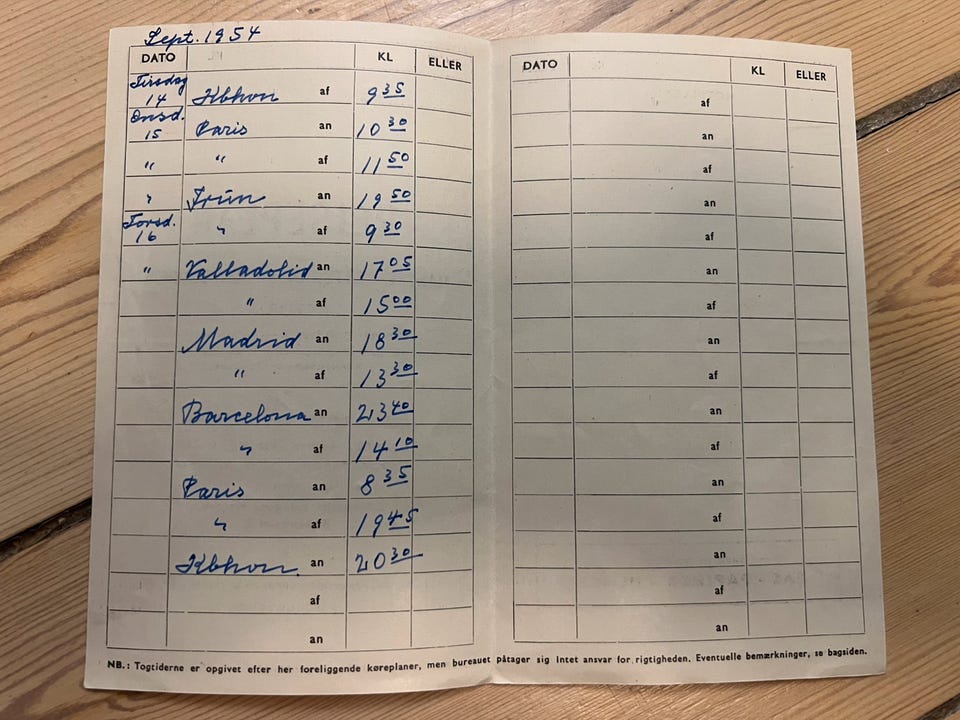 Sept. 1954
DATO KL ELLER
Tirsdag
14 Kbhvn af 9 35
Onsd.
15 Paris an 10 30
" " af 11 50
" Irún an 19 50
Torsd.
16 " af 9 30
" Valladolid an 17 05
" af 15 00
Madrid an 18 30
" af 13 30
Barcelona an 23 40
" af 14 10
Paris an 8 35
" af 19 45
Kbhvn. an 20 30
af
an
DATO KL ELLER
af
an
af
an
af
an
af
an
af
an
af
an
af
an
af
an
NB.: Togtiderne er opgivet efter her foreliggende køreplaner, men bureauet påtager sig intet ansvar for rigtigheden. Eventuelle bemærkninger, se bagsiden.